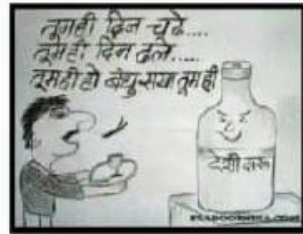 तुमही दिन चढे....
तुम ही दिन ढले.....
तुमही हो बंधु सखा तुम ही
देशी दारू